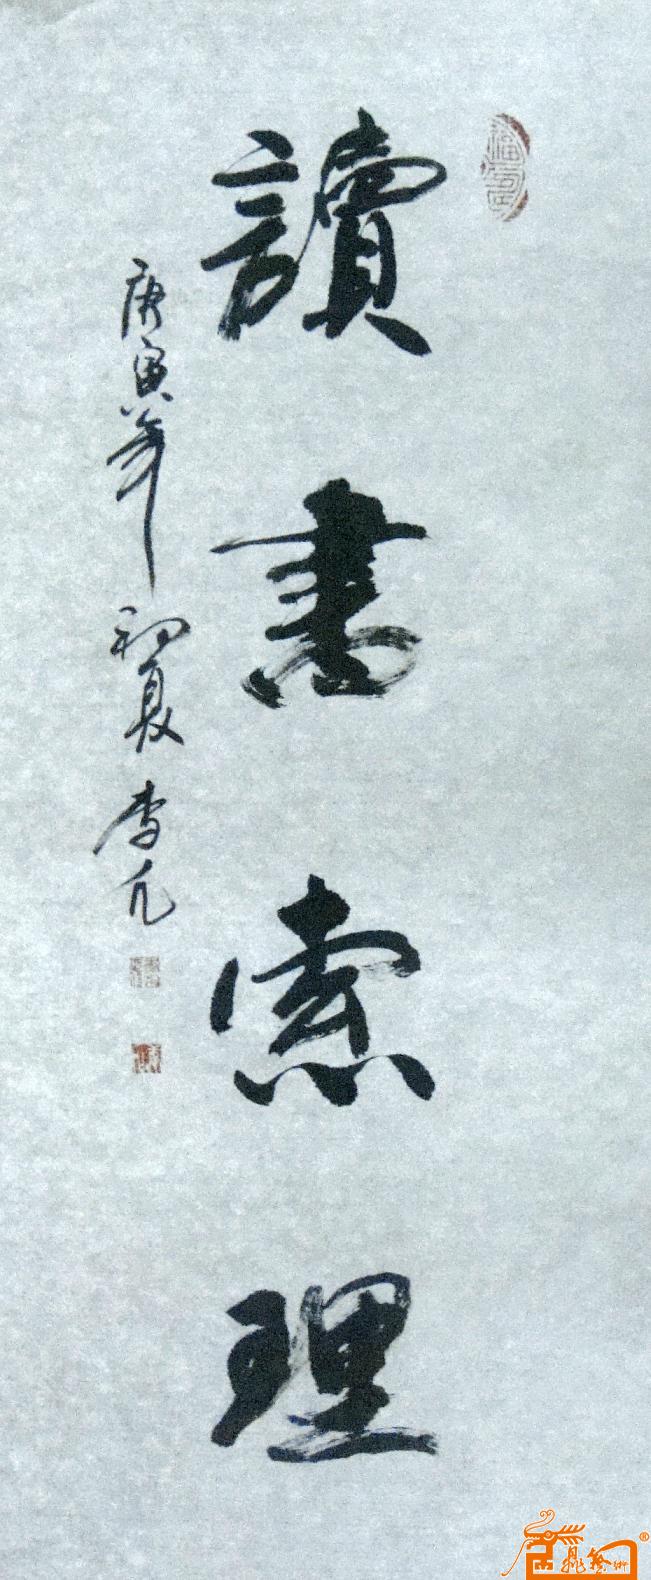 讀書索理
庚寅年初夏 李凡